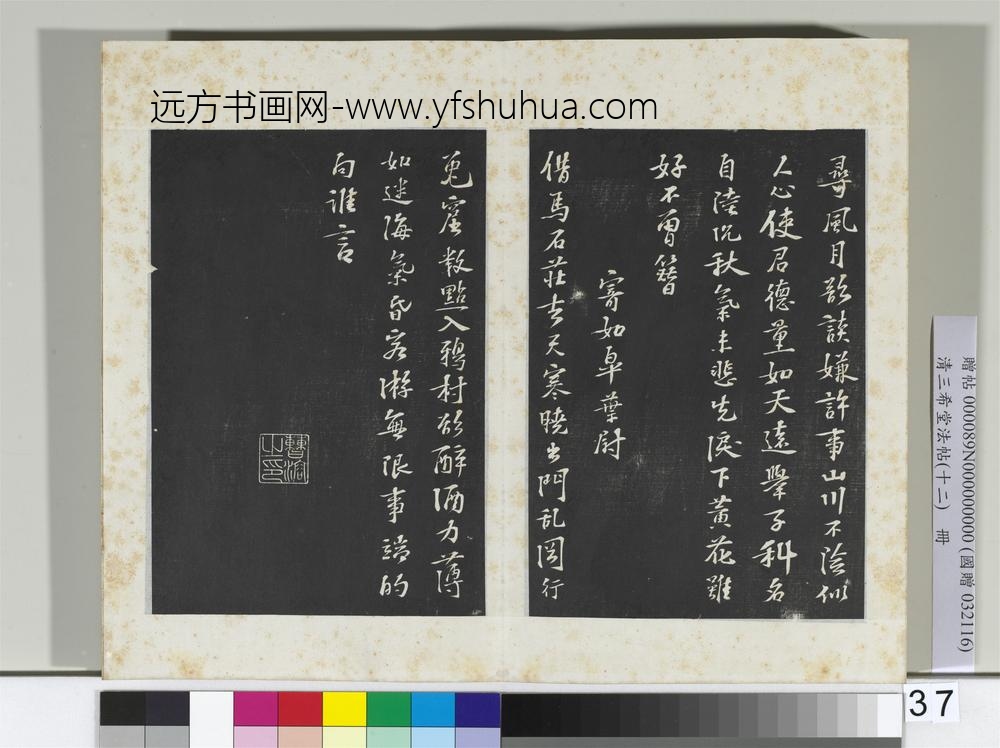 远方书画网-www.yfshuhua.com
尋風月欲談嫌許事山川不險似
人心使君德量如天遠舉子科名
自陸沉秋氣未悲先淚下黃花雖
好不曾簪
寄如皋葉尉
借馬石莊去天寒曉出門乱岡行
兔窟数點入鴉村欲醉酒力薄
如迷海氣昏客游無限事端的
向誰言
贈帖 000089N000000000 (國贈 032116)
清三希堂法帖(十二) 冊
37